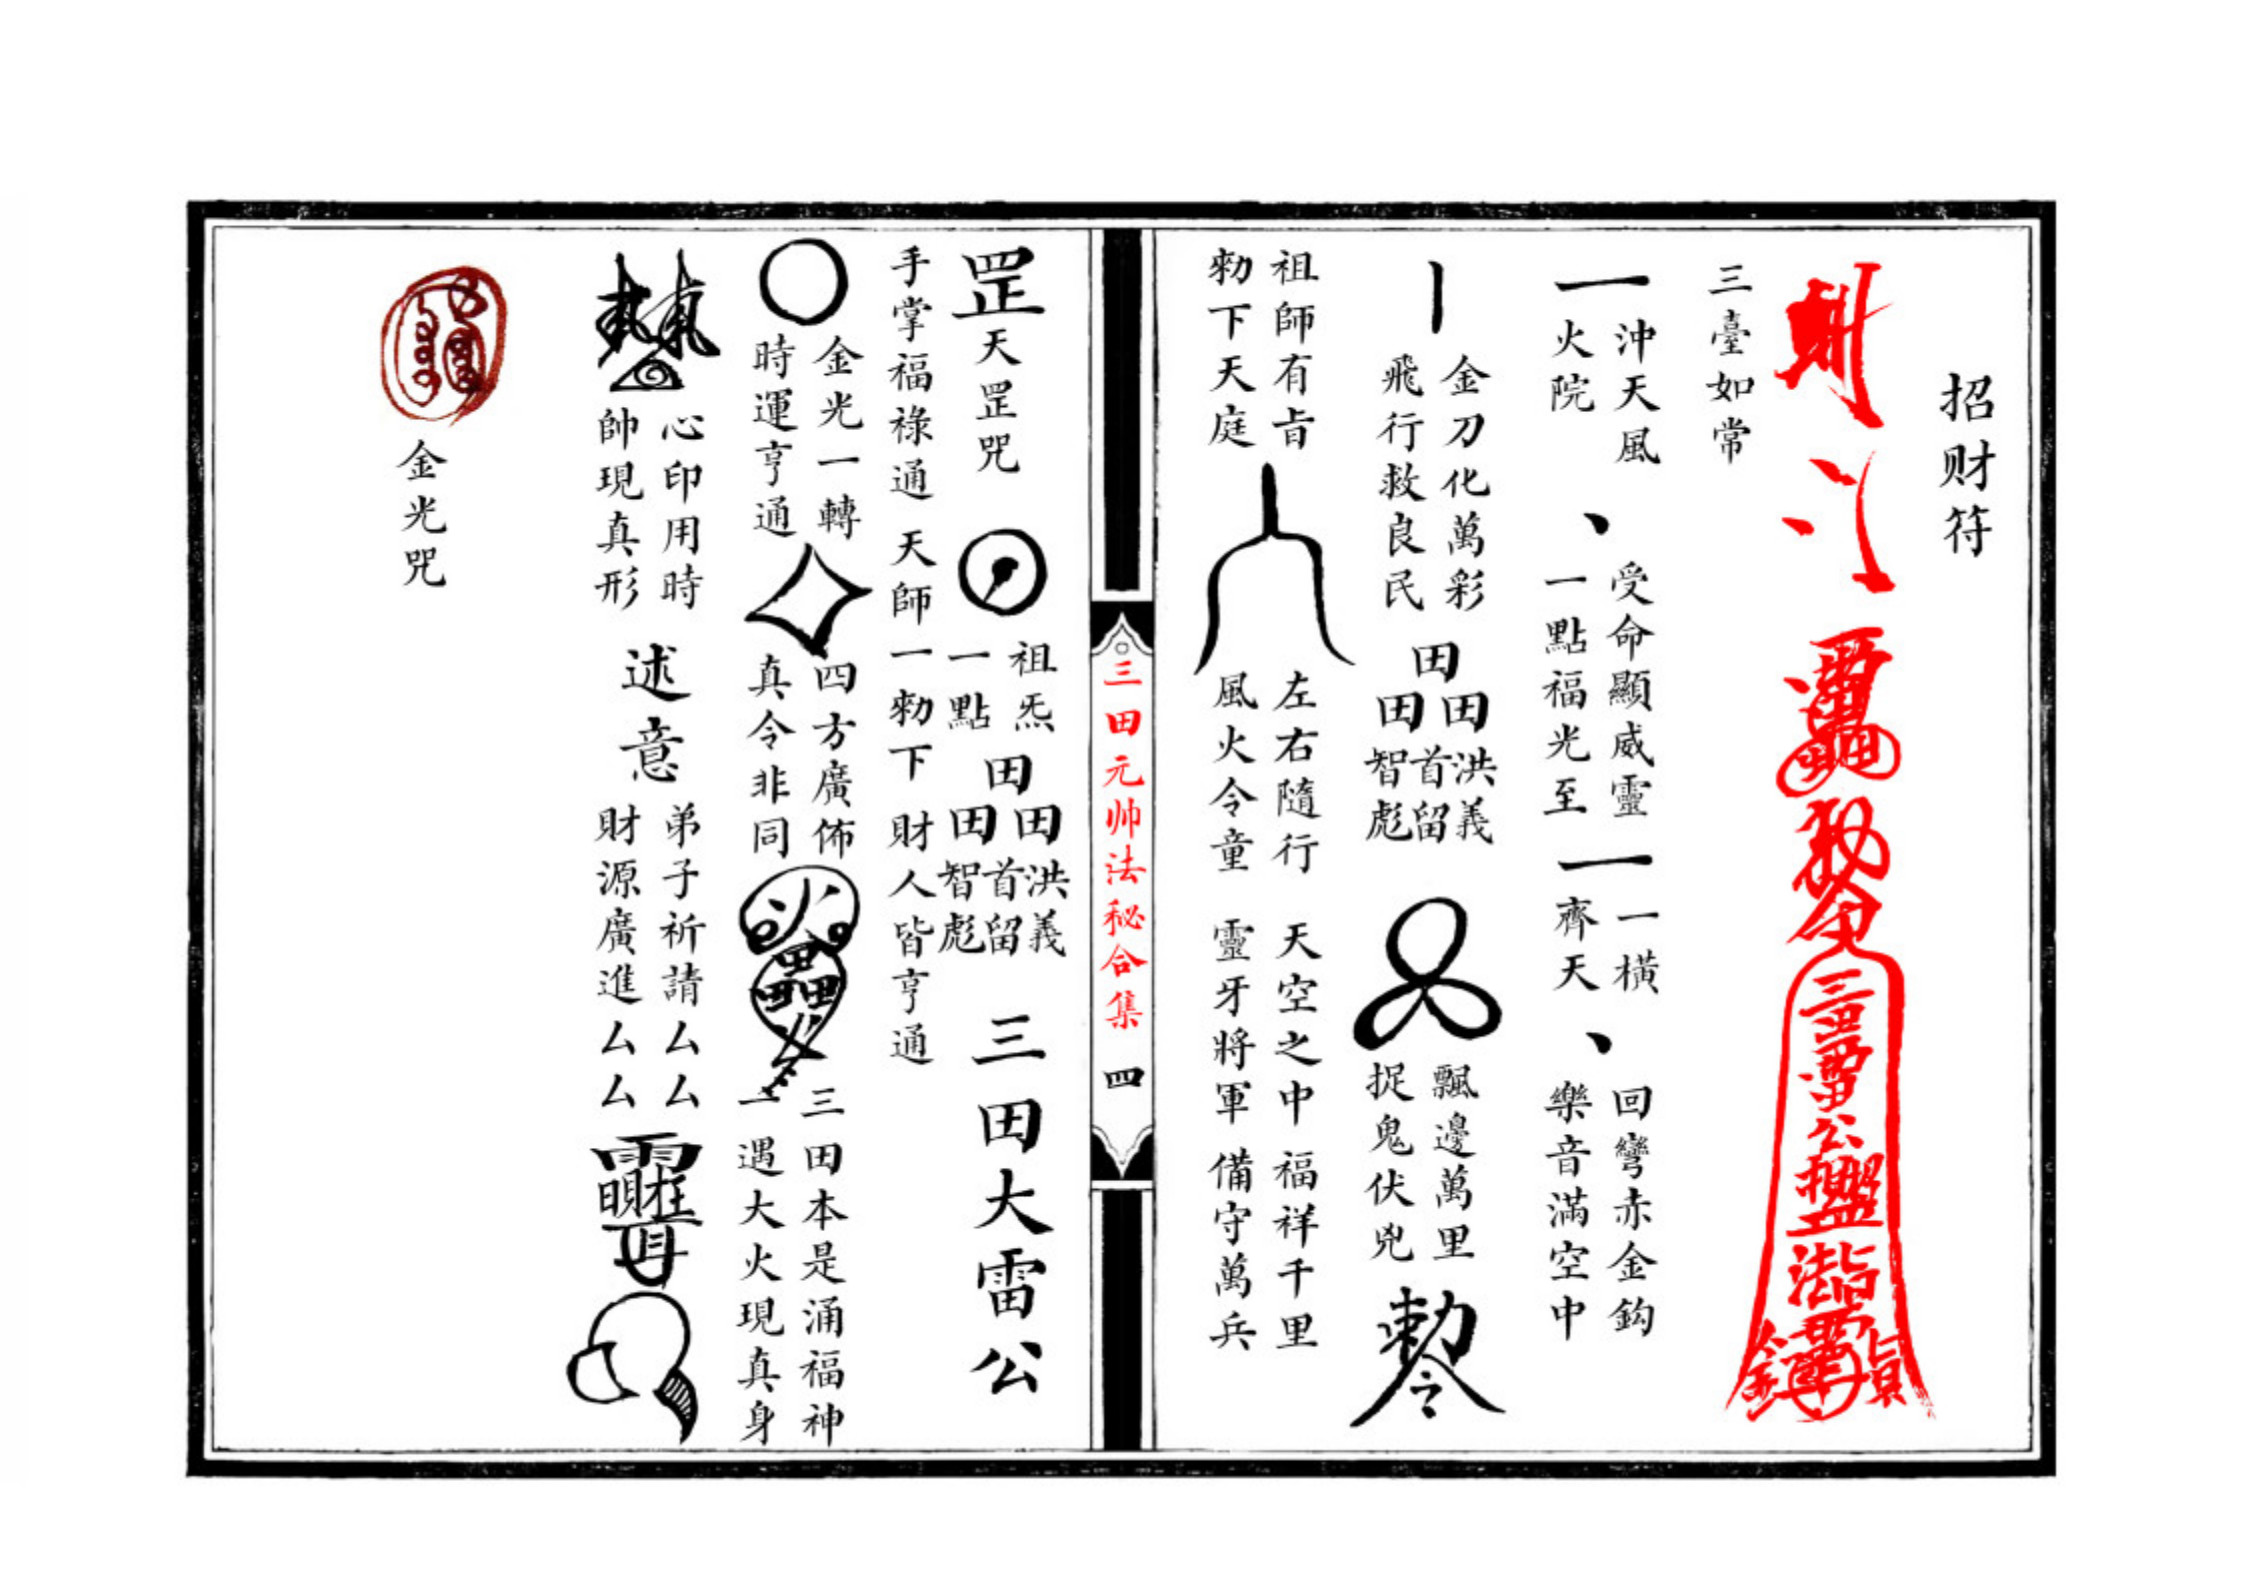 招财符
三臺如常
一
沖天風
火院
丶
受命顯威靈
一點福光至
一
一橫
齊天
丶
回彎赤金鈎
樂音滿空中
丨
金刀化萬彩
飛行救良民
田
田田
洪義
首留
智彪
飄邊萬里
捉鬼伏兇
勅令
祖師有旨
勑下天庭
左右隨行
風火令童
天空之中
靈牙將軍
福祥千里
備守萬兵
三田元帅法秘合集 四
罡
天罡咒
祖炁
一點
田
田田
洪義
首留
智彪
三田大雷公
手掌福祿通
天師一勑下
財人皆亨通
金光一轉
時運亨通
四方廣佈
真令非同
三田本是涌福神
一遇大火現真身
心印用時
帥現真形
述意
弟子祈請厶厶
財源廣進厶厶
金光咒